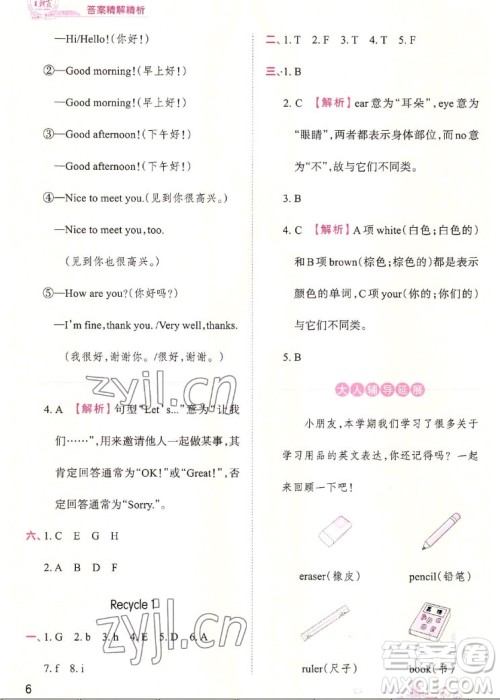 王朝霞
答案精解精析
—Hi/Hello!(你好!)
②—Good morning!(早上好!)
—Good morning!(早上好!)
③—Good afternoon!(下午好!)
—Good afternoon!(下午好!)
④—Nice to meet you.(见到你很高兴。)
—Nice to meet you,too.
(见到你也很高兴。)
⑤—How are you?(你好吗?)
—I'm fine,thank you./Very well,thanks.
(我很好,谢谢你。/我很好,谢谢。)
4. A 【解析】句型“Let's...”意为“让我
们……”,用来邀请他人一起做某事,其
肯定回答通常为“OK!”或“Great!”,否
定回答通常为“Sorry.”。
六、1. C E G H
2. A B D F
Recycle 1
一、1. G 2. b 3. h 4. r 5. a 6. D
7. f 8. i
6
二、1. T 2. T 3. F 4. F 5. T
三、1. B
2. C 【解析】ear意为“耳朵”,eye意为
“眼睛”,两者都表示身体部位,而no意
为“不”,故与它们不同类。
3. B
4. C 【解析】A项white(白色;白色的)
和B项brown(棕色;棕色的)都是表示
颜色的单词,C项your(你的;你们的)
与它们不同类。
5. B
大人辅导延展
小朋友,本学期我们学习了很多关于
学习用品的英文表达,你还记得吗?一
起来回顾一下吧!
eraser(橡皮)
pencil(铅笔)
英语
ruler(尺子)
book(书)
zyjl.cn
zyjl.cn
答案圈
MXQE.COM